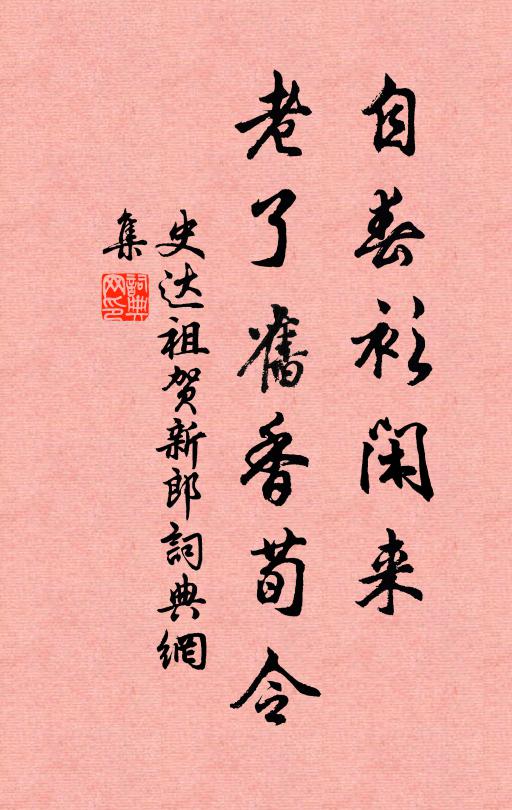 自春衫闲来
老了舊香荀令
史达祖贺新郎詞典網
集
詞典
网印